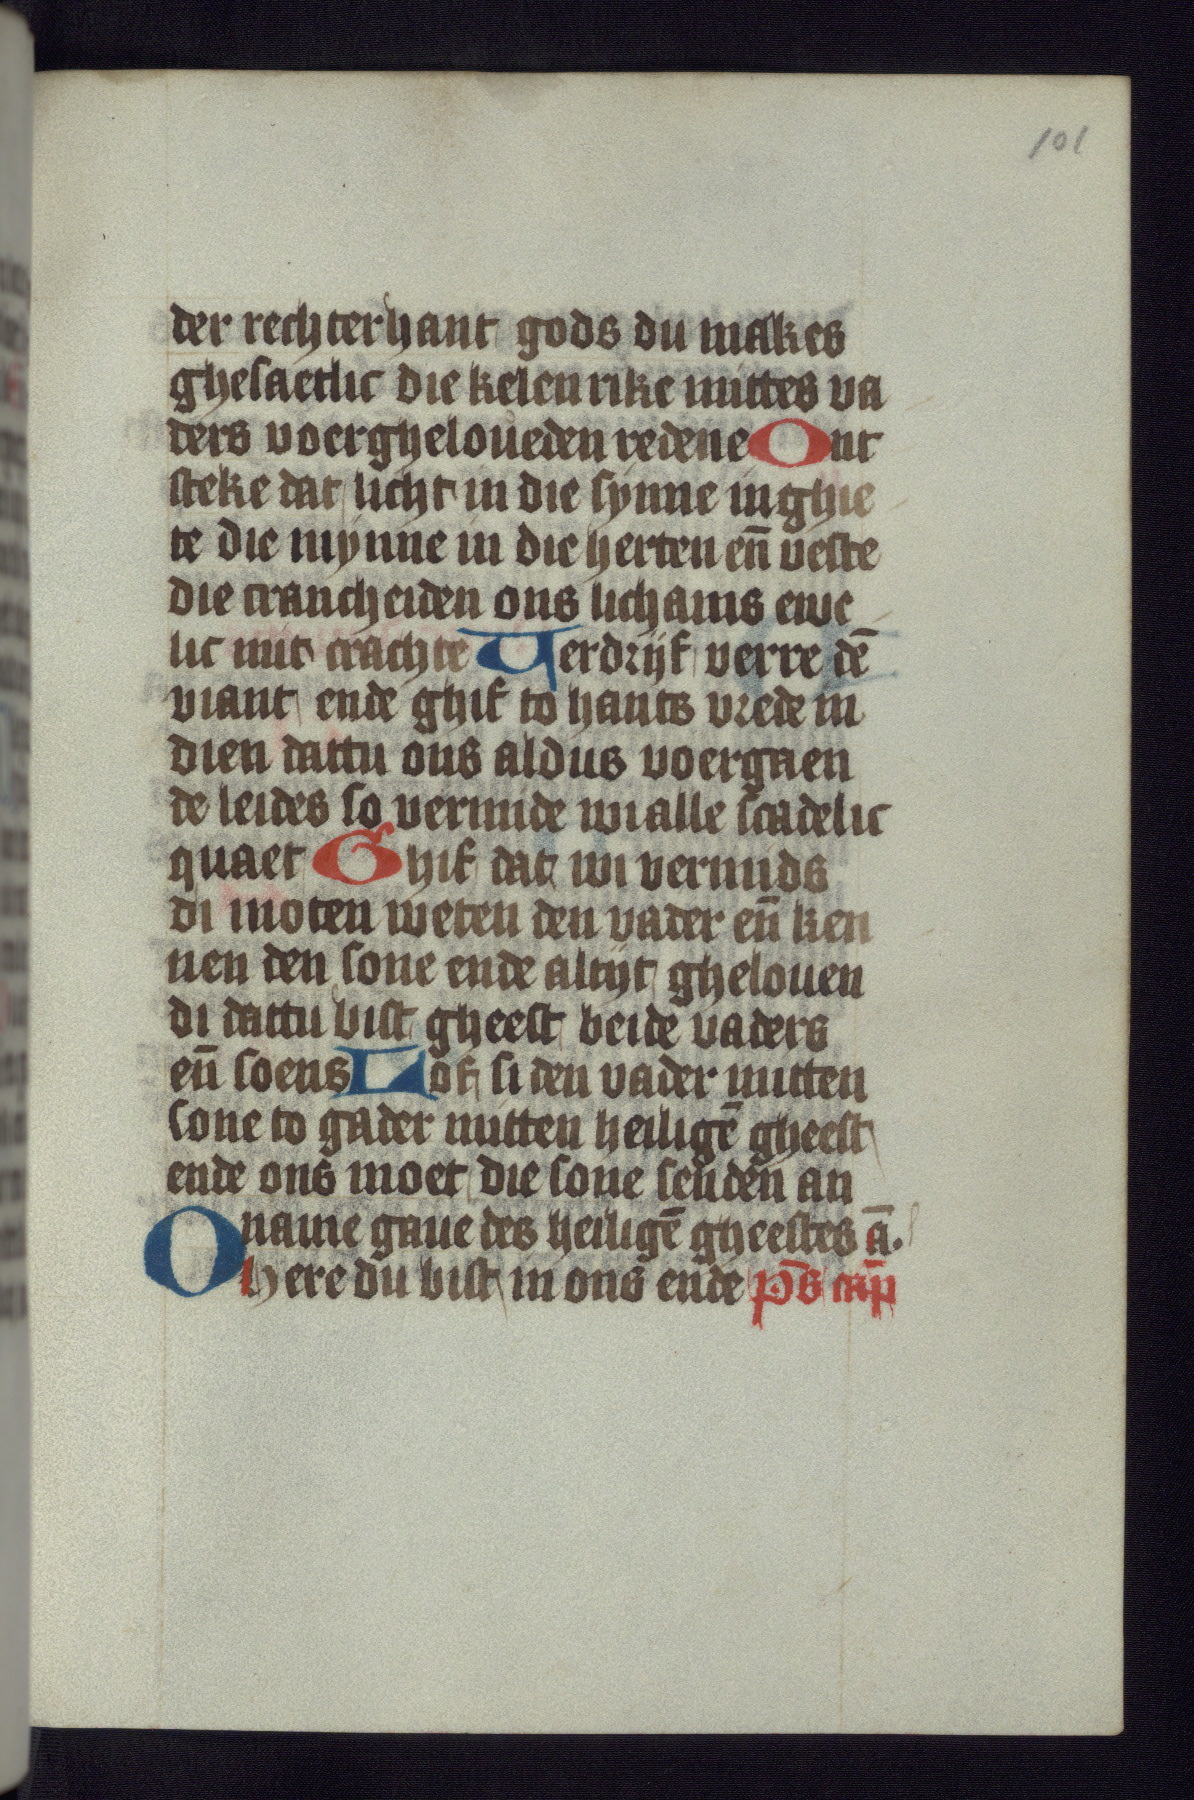 101
der rechterhant gods du makes
ghesaetlic die kelen rike mittes va
ders voergheloueden redene Ont
steke dat licht in die synne inghie
te die mynne in die herten en̄ veste
die crancheiden ons lichams ewe
lic mit crachte Verdrijf verre dē
viant ende ghif to hants vrede in
dien dattu ons aldus voergaen
de leides so vermide wi alle scadelic
quaet Ghif dat wi vermids
di moten weten den vader en̄ ken
nen den sone ende altijt ghelouen
di dattu bist gheest beide vaders
en̄ soens Lof si den vader mitten
sone to gader mitten heiligē gheest
ende ons moet die sone senden an
name gaue des heiligē gheestes ā.
O here du bist in ons ende ps̄